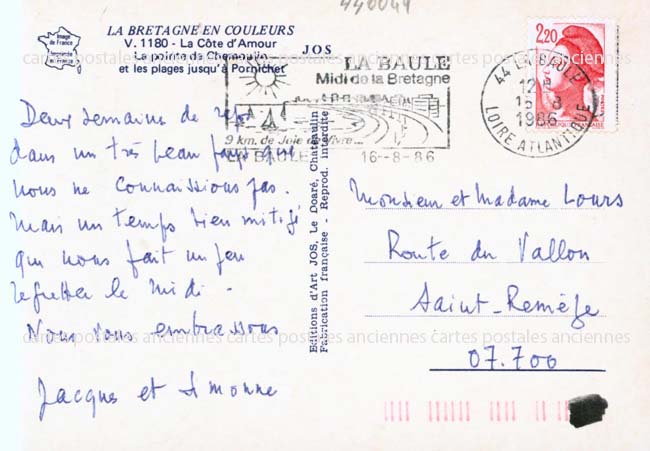 440049
Image de France
Imprimée en France
LA BRETAGNE EN COULEURS
V. 1180 - La Côte d'Amour
La pointe de Chemoulin
et les plages jusqu'à Pornichet
JOS
LA BAULE
Midi de la Bretagne
9 km. de Joie de Vivre...
LA BAULE 16-8-86
44 LA BAULE
12H
16-8
1986
LOIRE ATLANTIQUE
2,20
cartes postales anciennes cartes postales anciennes cartes postales anciennes
Deux semaines de repos
dans un très beau pays que
nous ne connaissions pas.
mais un temps bien mitigé
qui nous fait un peu
regretter le midi.
Nous vous embrassons
Jacques et Simonne
Editions d'Art JOS, Le Doaré, Chateaulin
Fabrication française - Reprod. interdite
Monsieur et Madame Lours
Route du Vallon
Saint-Remèze
07.700
cartes postales anciennes cartes postales anciennes cartes postales anciennes